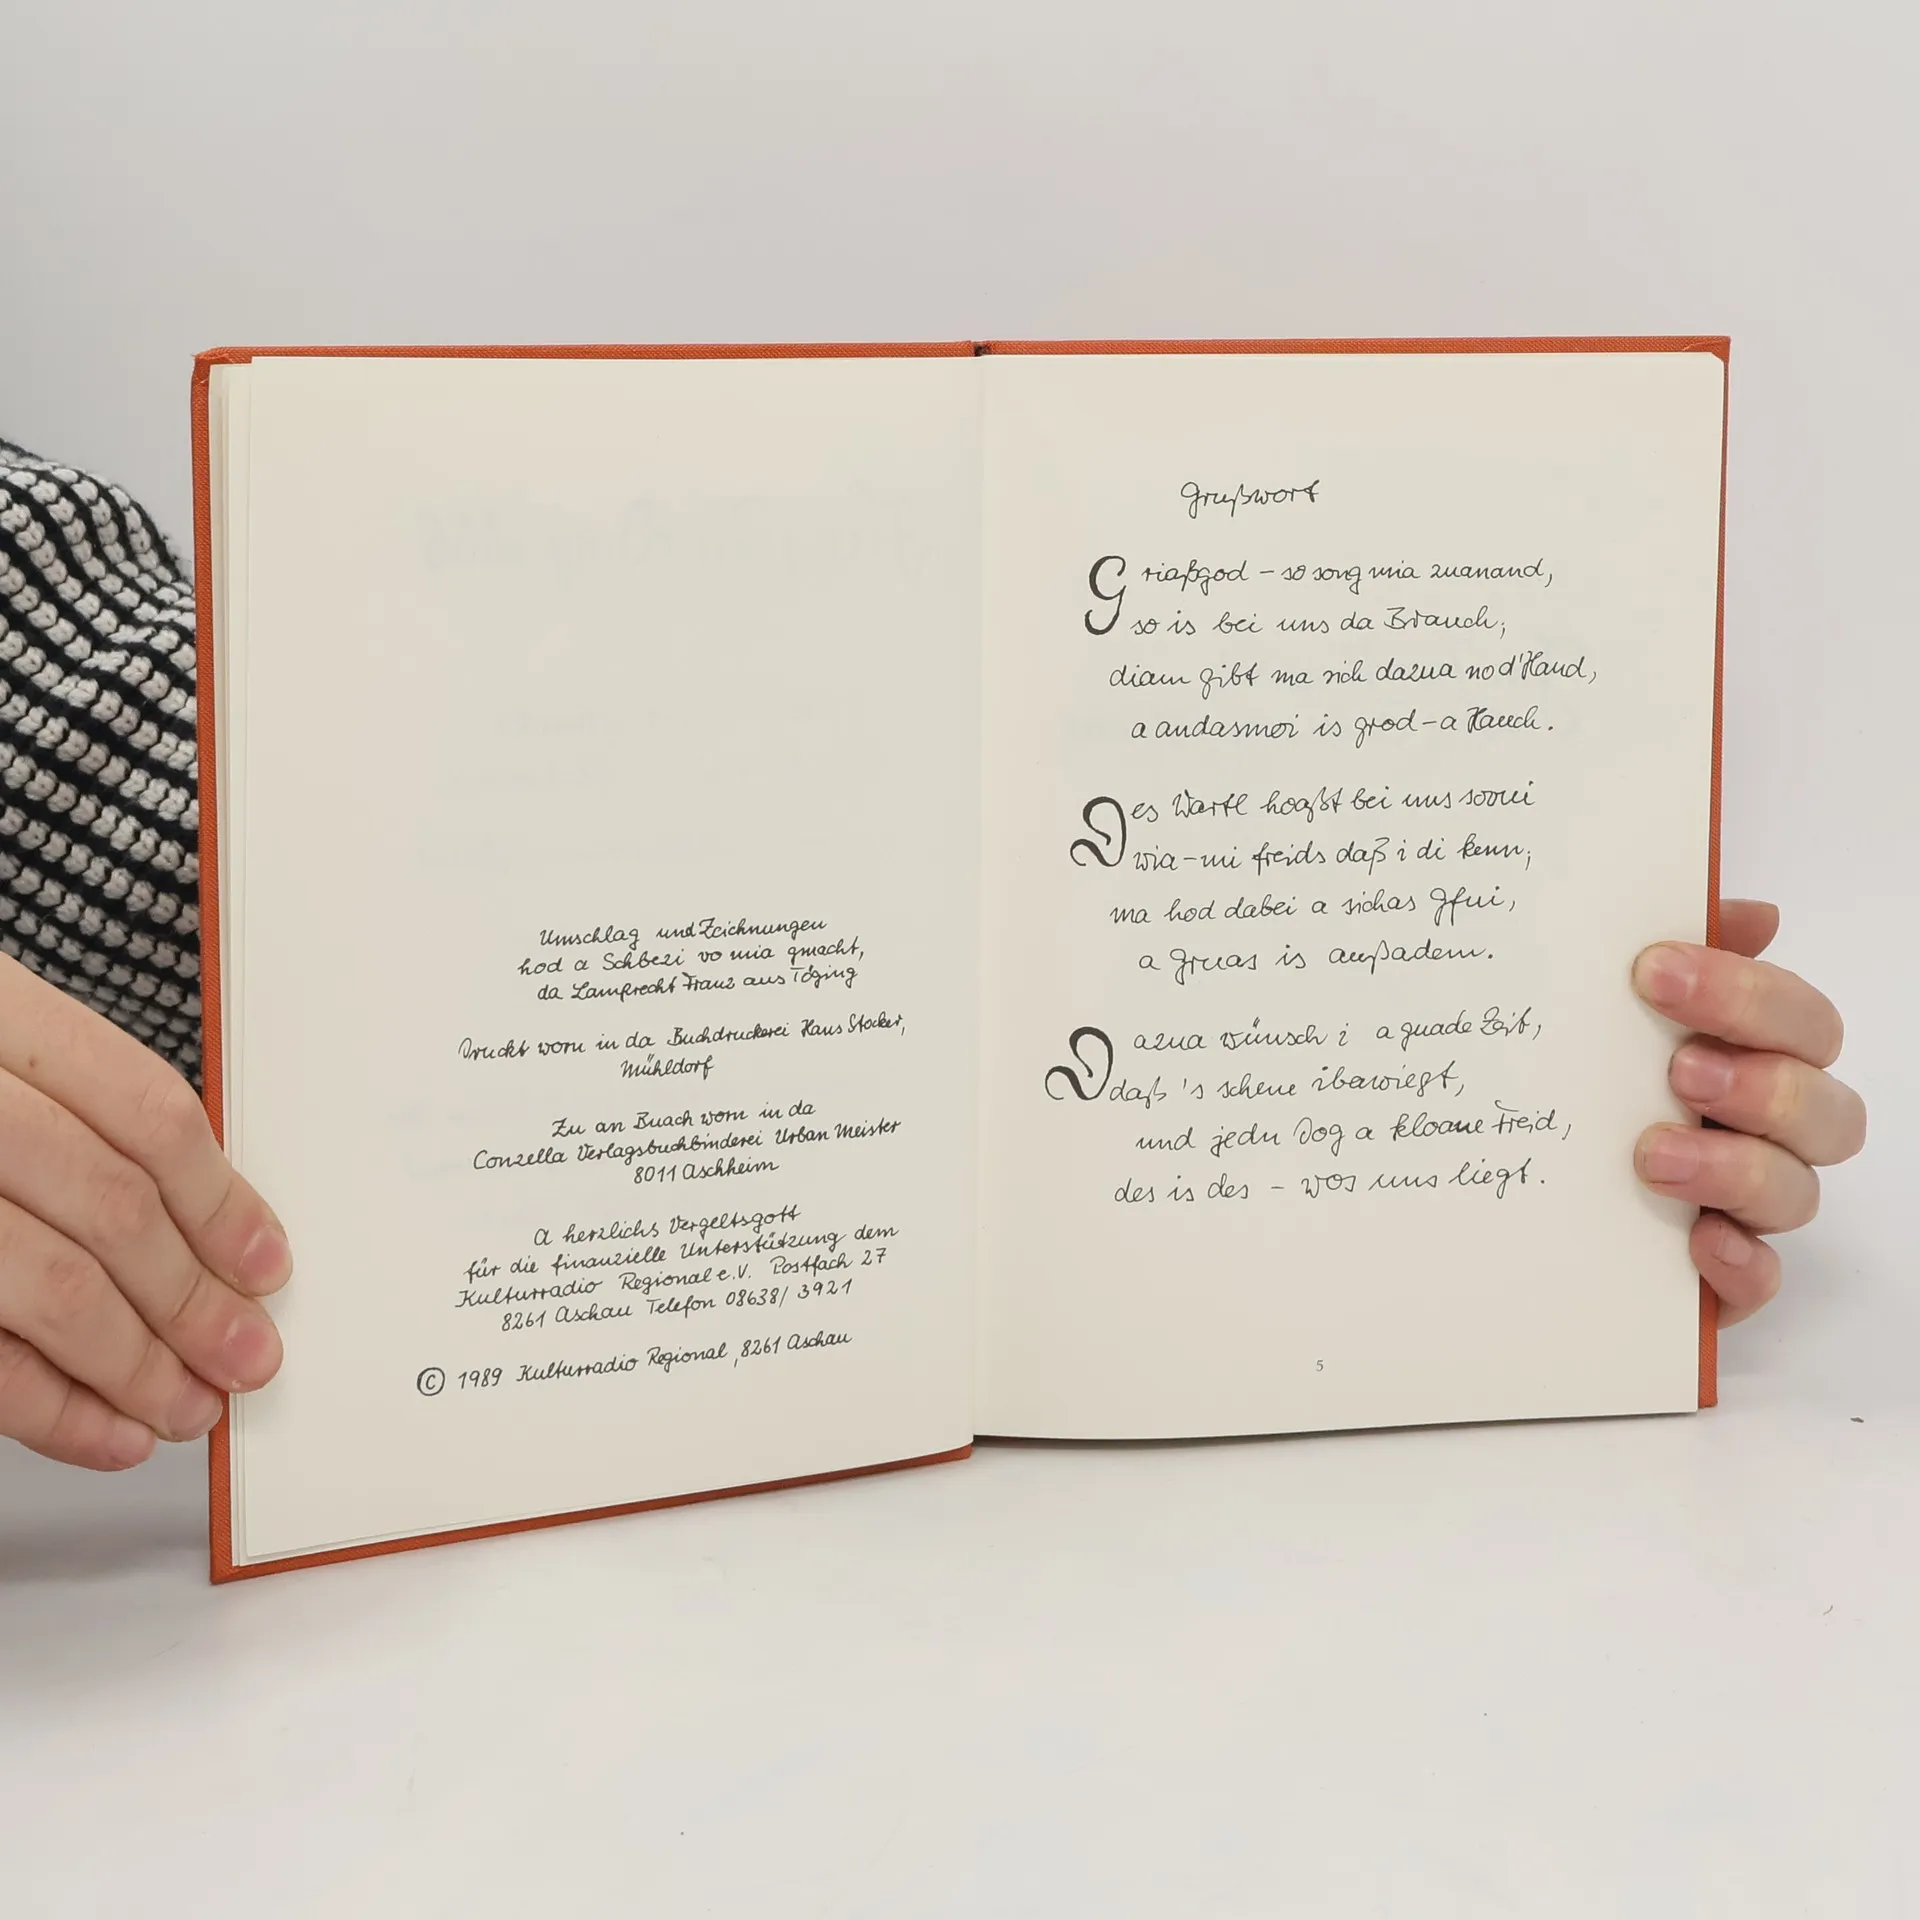 Umschlag und Zeichnungen
hod a Schbezi vo mia gmacht,
da Lamprecht Franz aus Töging
Druckt worn in da Buchdruckerei Hans Stocker,
Mühldorf
Zu an Buach worn in da
Conzella Verlagsbuchbinderei Urban Meister
8011 Aschheim
A herzlichs Vergeltsgott
für die finanzielle Unterstützung dem
Kulturradio Regional e.V. Postfach 27
8261 Aschau Telefon 08638/ 3921
© 1989 Kulturradio Regional, 8261 Aschau
Grußwort
Griaßgod – so song mia zuanand,
so is bei uns da Brauch;
diam gibt ma sich dazua no d'Hand,
a andasmoi is grod – a Hauch.
Des Wartl hoaßt bei uns sovui
wia – mi freids daß i di kenn;
ma hod dabei a sichas Gfui,
a Gruas is außadem.
Dazua wünsch i a guade Zeit,
daß 's schene ibawiegt,
und jedn Dog a kloane Freid,
des is des – wos uns liegt.
5